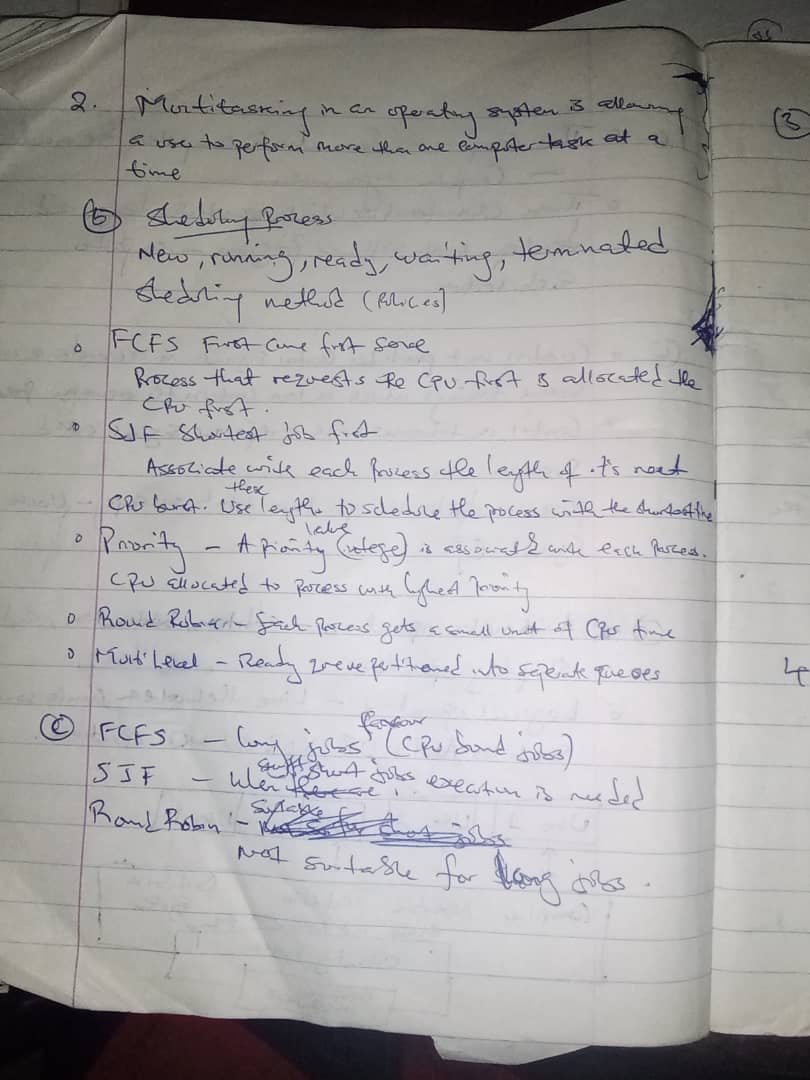 2. Multitasking in an operating system is allowing
a user to perform more than one computer task at a
time
(b) Sheduling Process
New, running, ready, waiting, terminated
Sheduling method (Policies)
FCFS First Came first Serve
Process that requests the CPU first is allocated the
CPU first.
SJF Shortest job first
Associate with each Process the length of it's next
CPU burst. Use these lengths to schedule the process with the shortest time
Priority - A priority value (intege) is associated with each Process.
CPU allocated to process with highest Priority
Round Robin - Each Process gets a small unit of CPU time
Multi Level - Ready queue partitioned into seperate queues
(c) FCFS - Long jobs favour (CPU bond jobs)
SJF - When short jobs execution is needed
Round Robin -
Not suitable for long jobs.
3
4